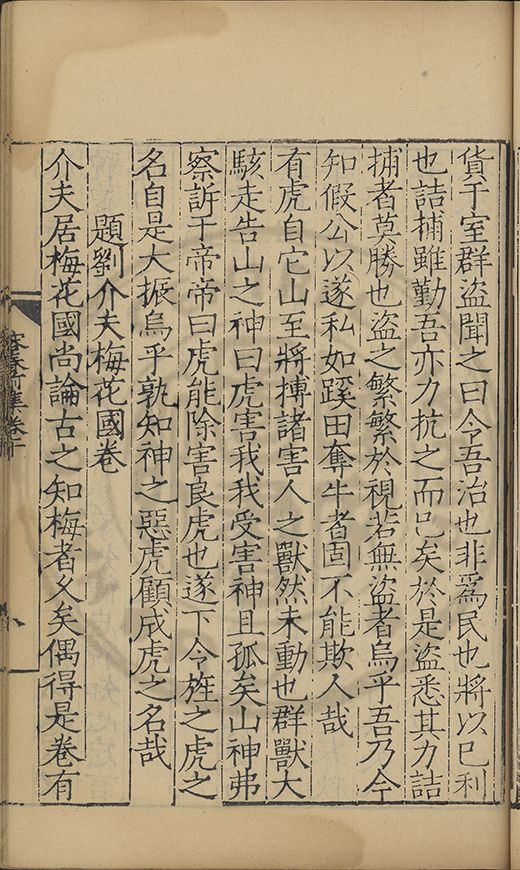 貨于室群盜聞之曰令吾治也非爲民也將以已利
也詰捕雖勤吾亦力抗之而已矣於是盜悉其力詰
捕者莫勝也盜之繁繁於視若無盜者烏乎吾乃今
知假公以遂私如蹊田奪牛者固不能欺人哉
有虎自它山至將搏諸害人之獸然未動也群獸大
駭走告山之神曰虎害我我受害神且孤矣山神弗
察訴于帝帝曰虎能除害良虎也遂下令旌之虎之
名自是大振烏乎孰知神之惡虎顧成虎之名哉
題劉介夫梅花國卷
介夫居梅花國尚論古之知梅者久矣偶得是卷有